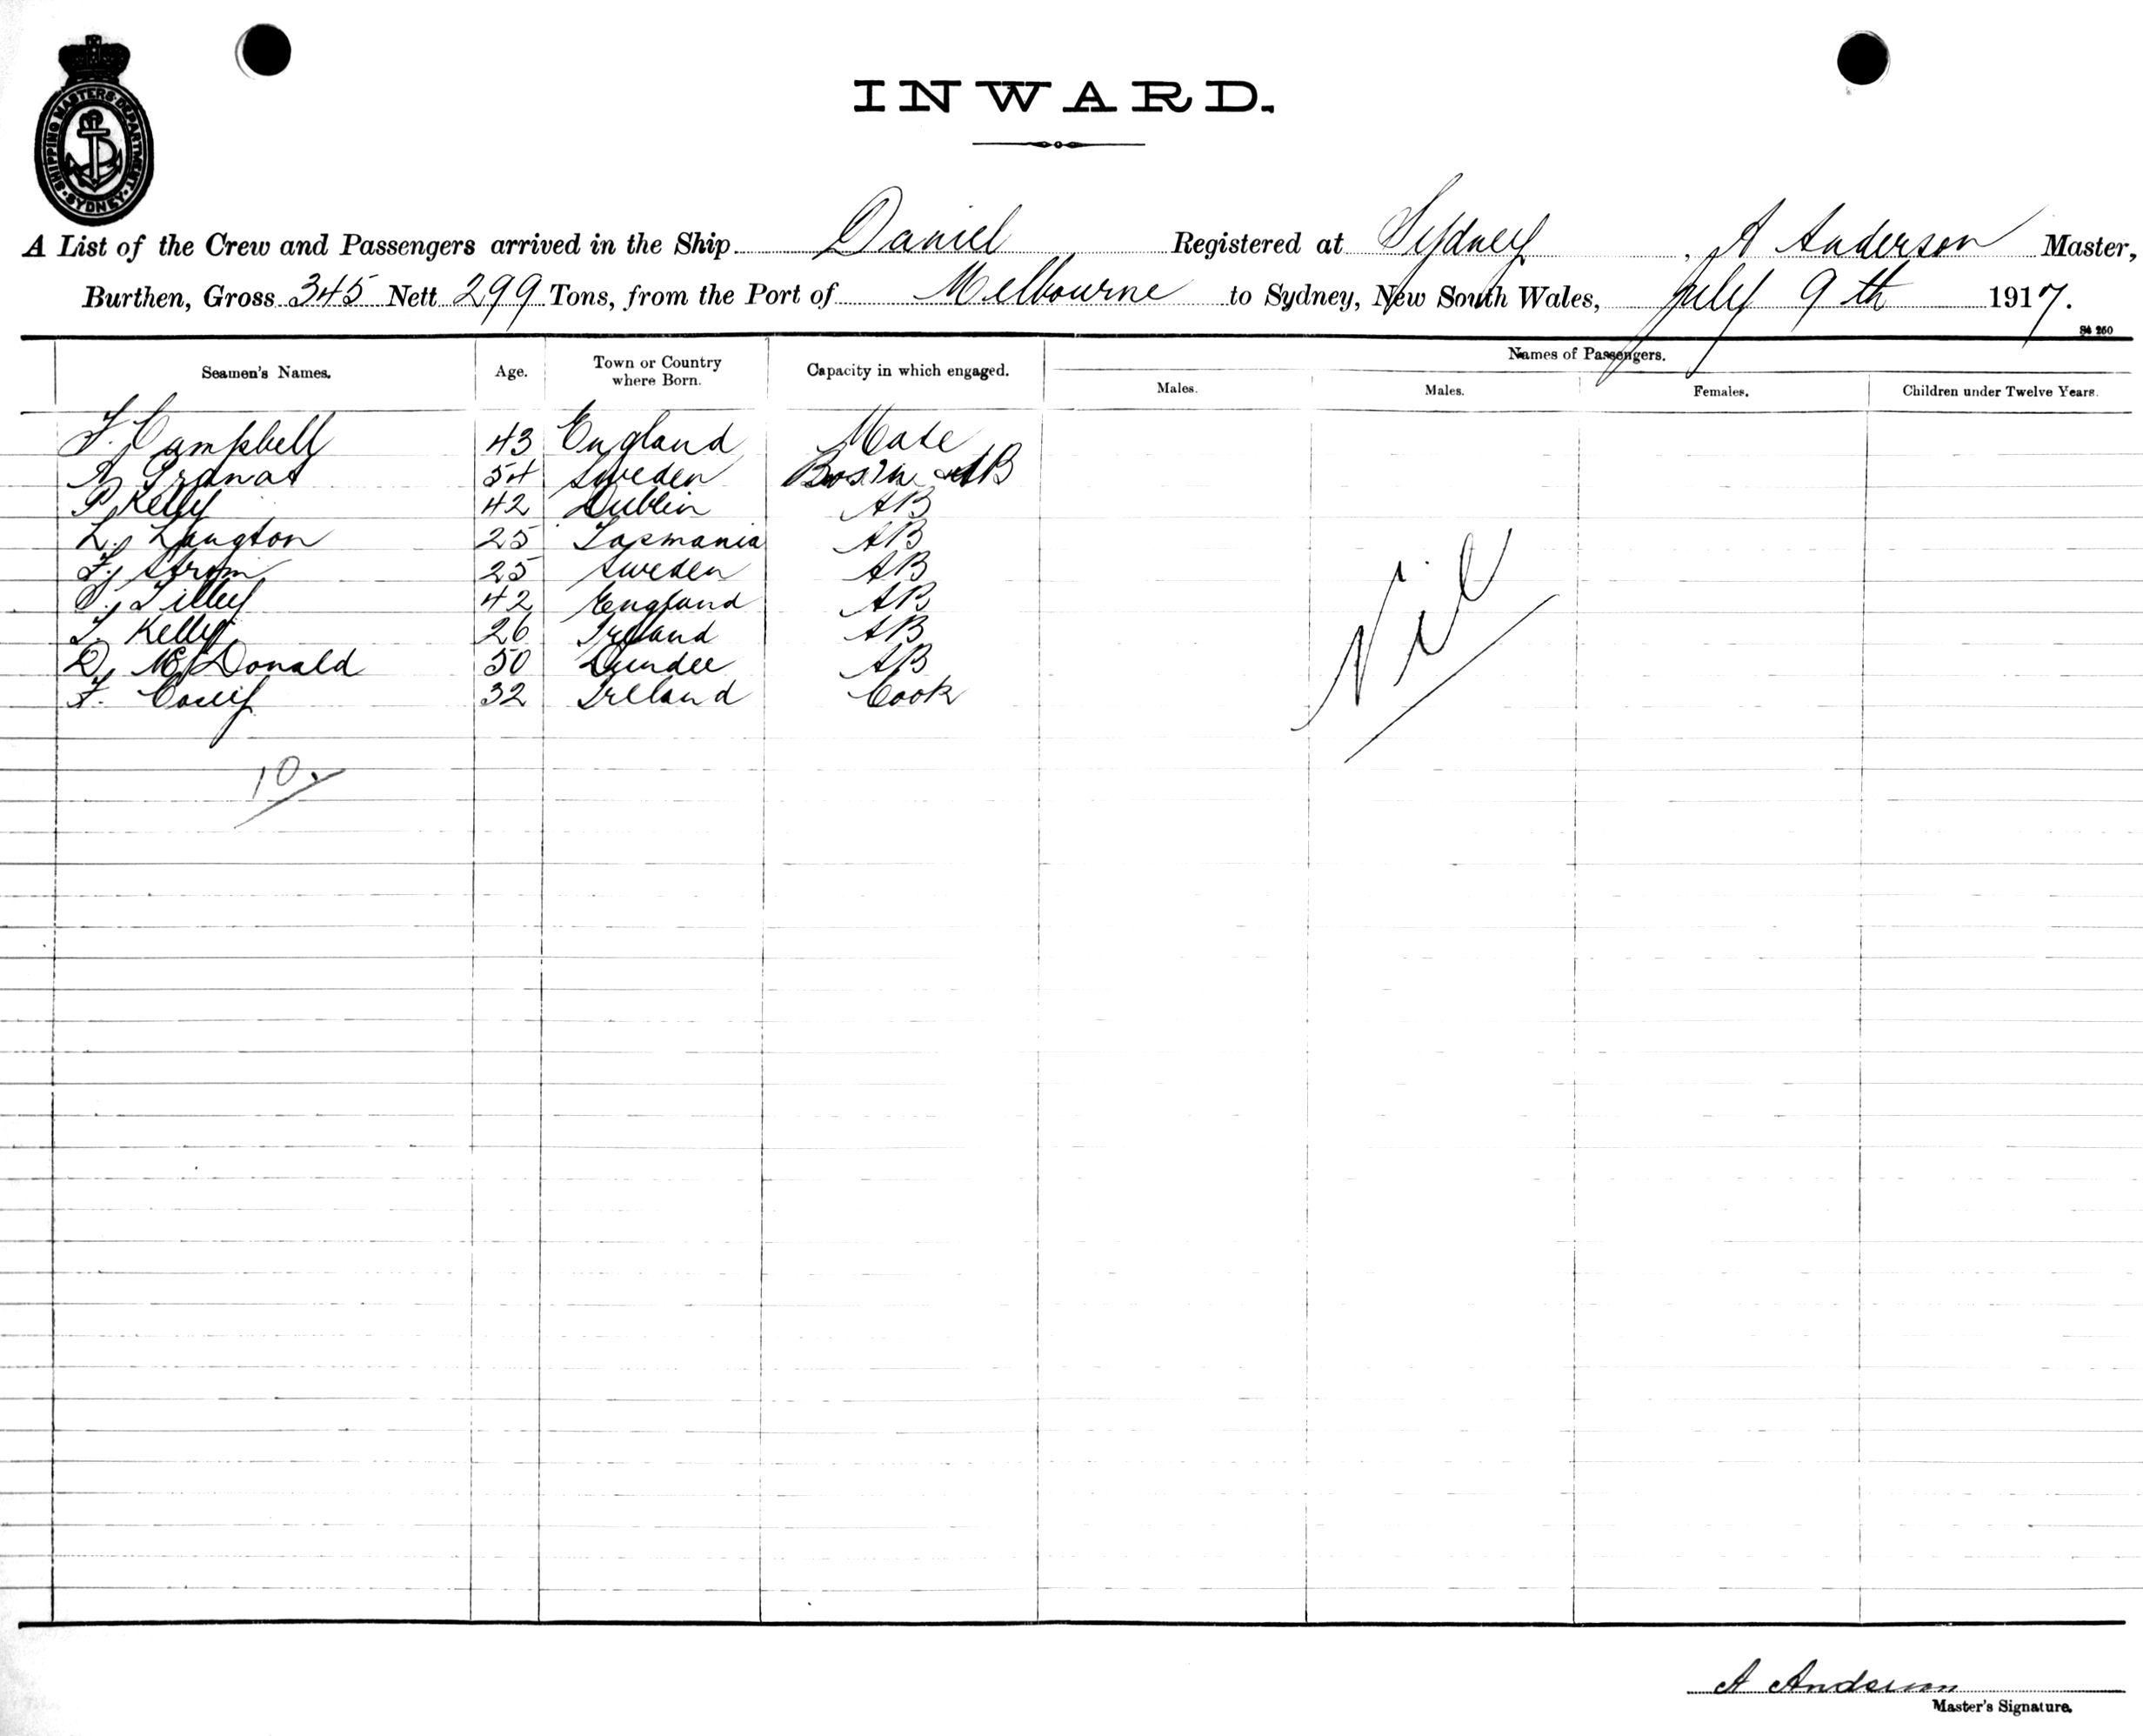 SHIPPING MASTERS DEPARTMENT
SYDNEY
INWARD.
A List of the Crew and Passengers arrived in the Ship Daniel Registered at Sydney, A Anderson Master,
Burthen, Gross 345 Nett 299 Tons, from the Port of Melbourne to Sydney, New South Wales, July 9th 1917.
Names of Passengers.
Seamen's Names. Age. Town or Country where Born. Capacity in which engaged. Males. Males. Females. Children under Twelve Years.
F. Campbell 43 England Mate
A Granat 54 Sweden Bos'n AB
P Kelly 42 Dublin AB
L. Langton 25 Tasmania AB
F. Strom 25 Sweden AB
Tilley 42 England AB
T. Kelly 26 Ireland AB
D. McDonald 50 Dundee AB
F. 32 Ireland Cook
Nil
10
A Anderson
Master's Signature.